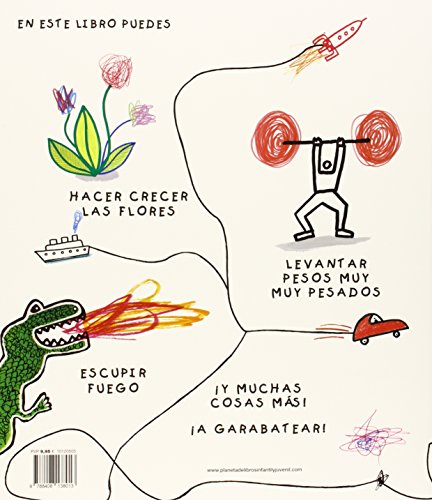 EN ESTE LIBRO PUEDES
HACER CRECER
LAS FLORES
LEVANTAR
PESOS MUY
MUY PESADOS
ESCUPIR
FUEGO
¡Y MUCHAS
COSAS MÁS!
¡A GARABATEAR!
PVP 9,95 €
www.planetadelibrosinfantilyjuvenil.com
9 788408 138013